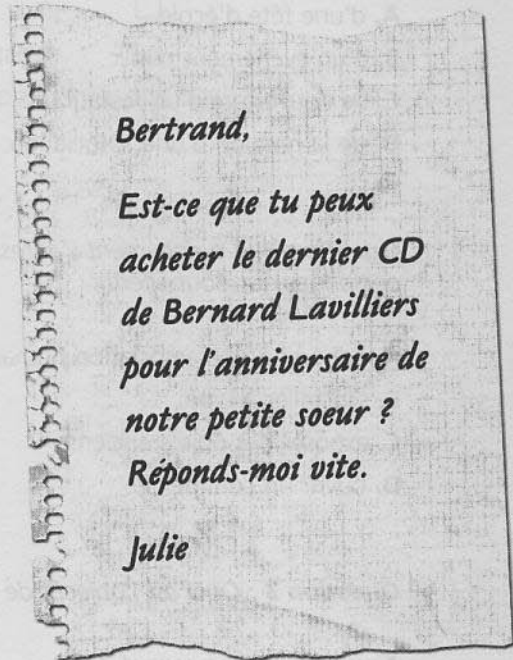 Bertrand,
Est-ce que tu peux
acheter le dernier CD
de Bernard Lavilliers
pour l'anniversaire de
notre petite soeur ?
Réponds-moi vite.
Julie